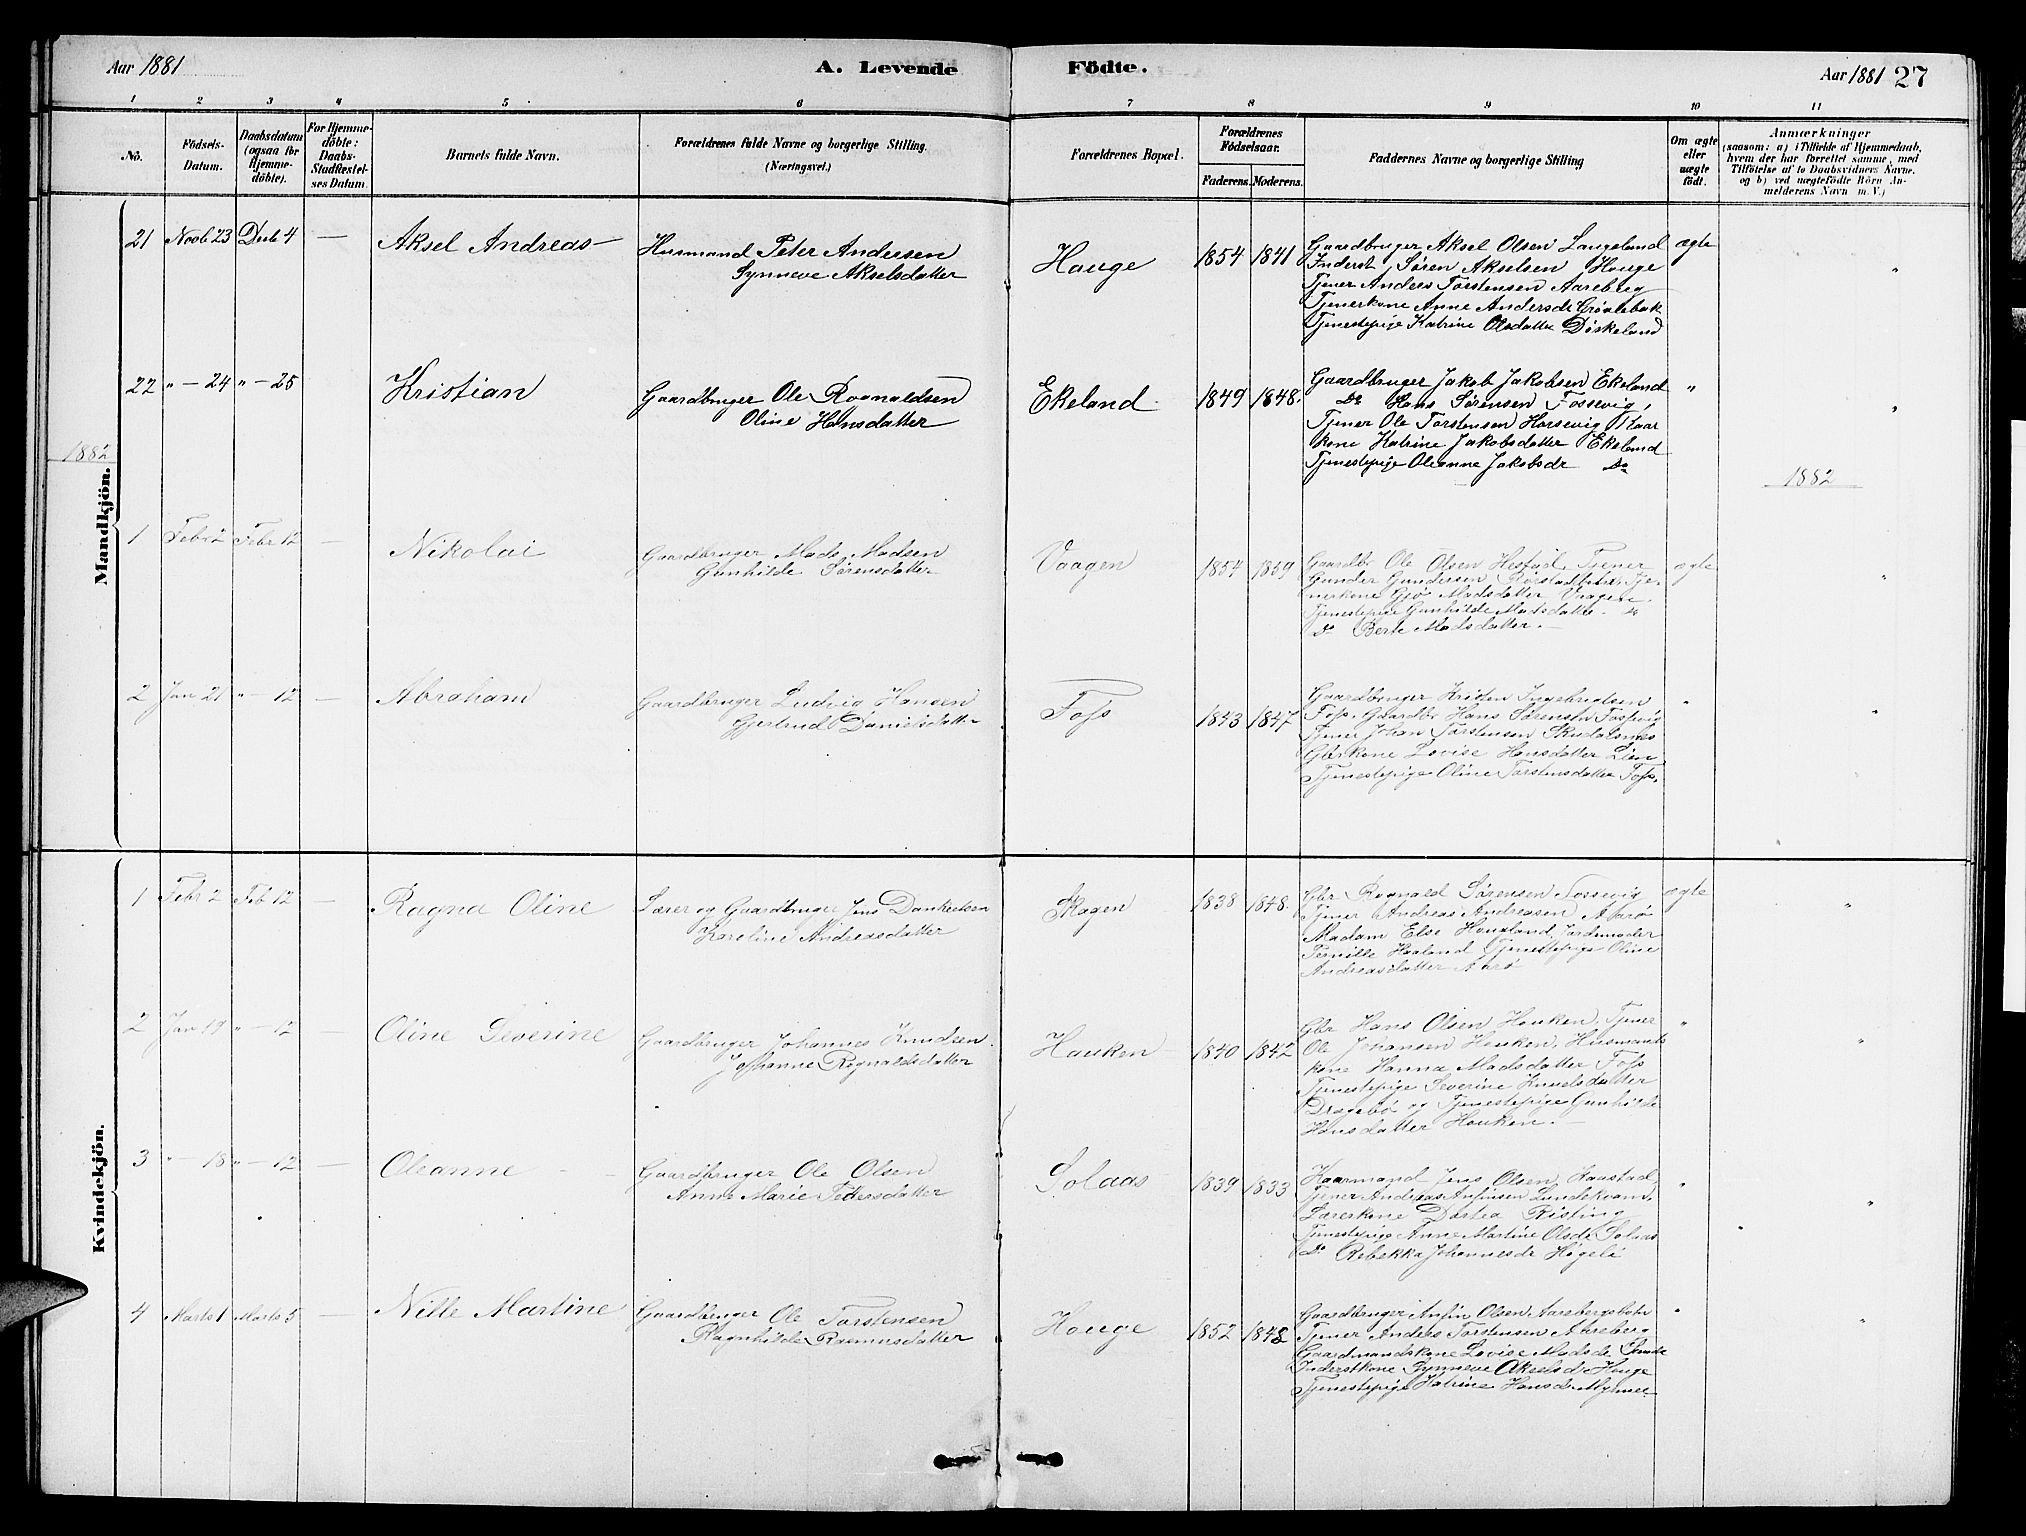 Aar 1881
A. Levende Födte.
Aar 1881 27
1 2 3 4 5 6 7 8 9 10 11
No.
Födsels-Datum.
Daabsdatum (ogsaa for Hjemme-döbte).
For Hjemme-döbte: Daabs-Stadfæstel-ses Datum.
Barnets fulde Navn.
Forældrenes fulde Navne og borgerlige Stilling. (Næringsvei.)
Forældrenes Bopæl.
Forældrenes Födselsaar.
Faderens. Moderens.
Faddernes Navne og borgerlige Stilling
Om ægte eller uægte födt.
Anmærkninger
(saasom: a) i Tilfælde af Hjemmedaab, hvem der har forrettet samme, med Tilföielse af to Daabsvidners Navne. og b) ved uægtefödte Börn An-melderens Navn m. V.)
Mandkjön.
21 Novb 23 Decb 4 — Aksel Andreas —
Husmand Peter Andersen
Synneve Akselsdatter
Hauge 1854 1841
Gaardbruger Aksel Olsen Langeland
Inderst Søren Akselsen Hauge
Tjener Anders Torstensen Aareberg
Tjenerkone Anne Andersdr
Tjenestepige Katrine Olsdatter Døskeland
ægte "
22 " — 24 " — 25 Kristian
Gaardbruger Ole Rognaldsen
Oline Hansdatter
Ekeland 1849 1848.
Gaardbruger Jakob Jakobsen Ekeland
Do Hans Sørensen Fossevig,
Tjener Ole Torstensen Horsevig
kone Katrine Jakobsdatter Ekeland
Tjenestepige Oleanne Jakobsdr Do
" "
1882
1882
1 Febr 2 Febr 12 — Nikolai
Gaardbruger Mads Madsen
Gunhilde Sørensdatter
Vaagen 1854 1859
Gaardbr Ole Olsen Hestad, Tjener
Gunder Gundersen Tje-
nerkone Madsdatter Vaagen
Tjenestepige Gunhilde Madsdatter. Do
Do Berte Madsdatter. —
ægte "
2 Jan 21 " — 12 — Abraham
Gaardbruger Ludvig Hansen
Gjertrud Danielsdatter
Foss 1843 1847
Gaardbruger Kristen Ingebrigtsen
Foss. Gaardbr Hans Sørensen Fossevig
Tjener Johan Torstensen
Gbrkone Lovise Hansdatter Lien
Tjenestepige Oline Torstensdatter Foss.
" "
Kvindekjön.
1 Febr 2 Feb 12 — Ragna Oline
Lærer og Gaardbruger Jens Dankertsen
Karoline Andreasdatter
Skogen 1838 1848.
Gbr Rognald Sørensen Fossevig
Tjener Andreas Andreasen Aarø
Madam Else Haugland, Jordemoder
Pernille Haaland Tjenestepige Oline
Andreasdatter Aarø
ægte "
2 Jan 19 " — 12 — Oline Severine
Gaardbruger Johannes Knudsen.
Johanne Rognaldsdatter
Hauken 1840 1842
Gbr Hans Olsen Hauken, Tjener
Ole Johansen Hauken, Husmands
kone Hanna Madsdatter Foss
Tjenestepige Severine Knudsdatter
Dragebø og Tjenestepige Gunhilde
Hansdatter Hauken. —
" "
3 " — 18 " — 12 — Oleanne
Gaardbruger Ole Olsen
Anne Marie Pedersdatter
Solaas 1839 1833
Kaarmand Jens Olsen Haastad,
Tjener Andreas Anfinsen Lundekvam,
Lærerkone Dortea Risting
Tjenestepige Anne Martine Olsdr Solaas
Do Rebekka Johannesdr
" "
4 Marts 1 Marts 5 — Nille Martine
Gaardbruger Ole Torstensen
Ragnhilde Rasmusdatter
Hauge 1852 1848
Gaardbruger Anfin Olsen, Aarebergsbotn
Tjener Anders Torstensen Aareberg
Gaardmandskone Lovise Madsdr
Inderstkone Synneve Akselsdr Hauge
Tjenestepige Katrine Hansdr
" "